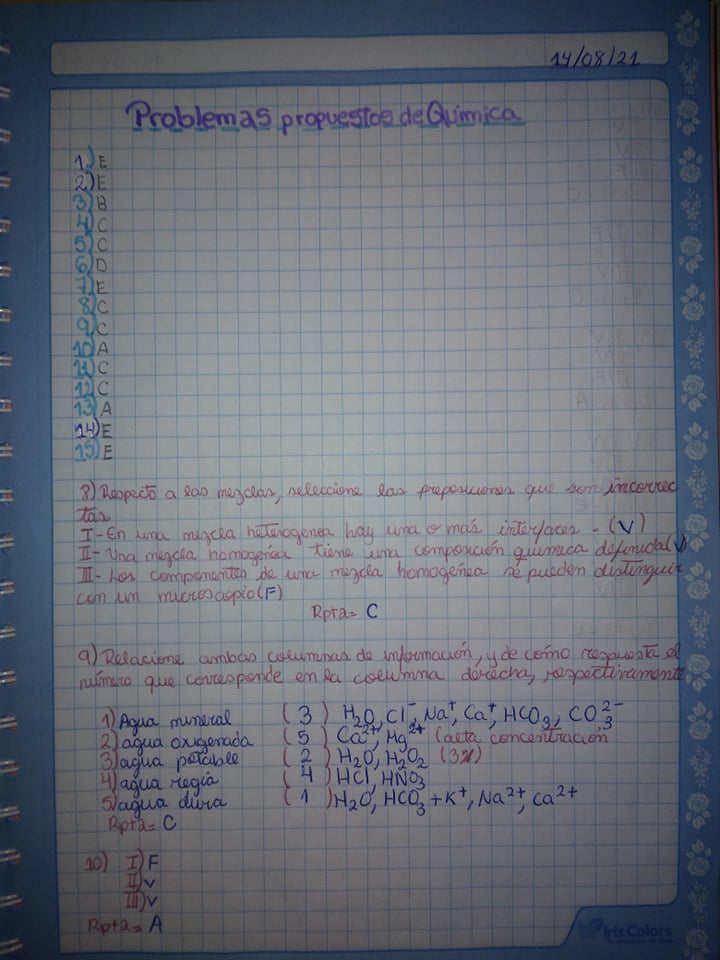 14/08/21
Problemas propuestos de Química
1) E
2) E
3) B
4) C
5) C
6) D
7) E
8) C
9) C
10) A
11) C
12) C
13) A
14) E
15) E
8) Respecto a las mezclas, seleccione las proposiciones que son incorrec
tas
I- En una mezcla heterogenea hay una o más interfaces - (V)
II- Una mezcla homogénea tiene una composición química definida(V)
III- Los componentes de una mezcla homogénea se pueden distinguir
con un microscopio (F)
Rpta= C
9) Relacione ambas columnas de información, y de como respuesta el
número que corresponde en la columna derecha, respectivamente
1) Agua mineral (3) H₂O, Cl⁻, Na⁺, Ca⁺, HCO₃, CO₃²⁻
2) agua oxigenada (5) Ca²⁺, Mg²⁺ (alta concentración
3) agua potable (2) H₂O, H₂O₂ (3%)
4) agua regia (4) HCl, HNO₃
5) agua dura (1) H₂O, HCO₃ + K⁺, Na²⁺, Ca²⁺
Rpta= C
10) I) F
II) V
III) V
Rpta= A
Iris Colors